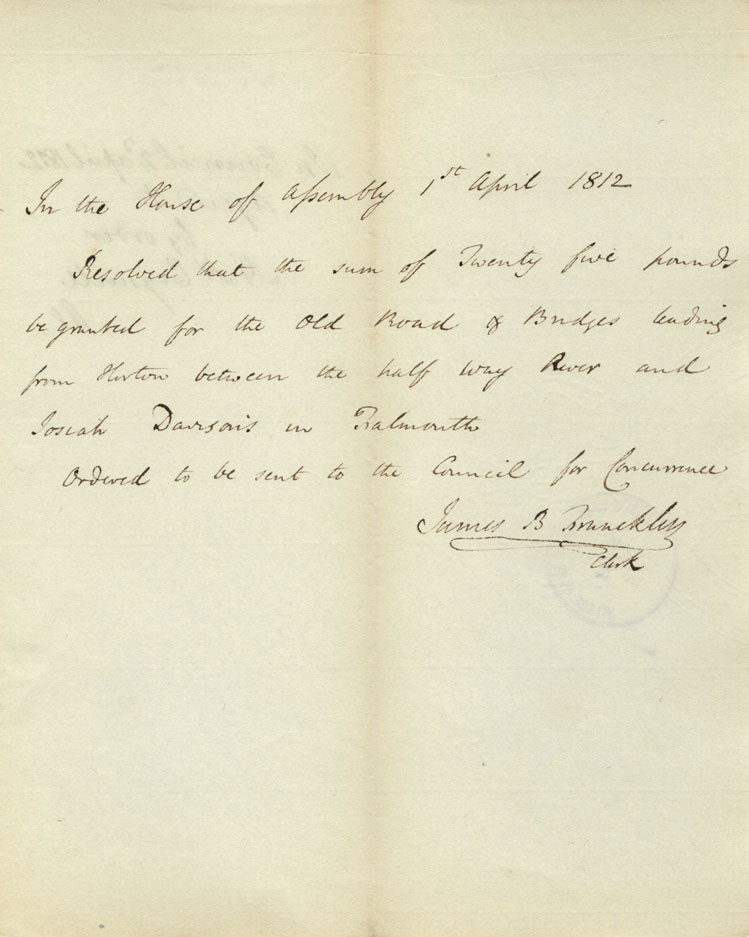 In the House of Assembly 1st April 1812
Resolved that the sum of Twenty five pounds
be granted for the Old Road & Bridges leading
from Horton between the half way River and
Josiah Davison's in Falmouth
Ordered to be sent to the Council for Concurrence
James B Francklin
Clerk